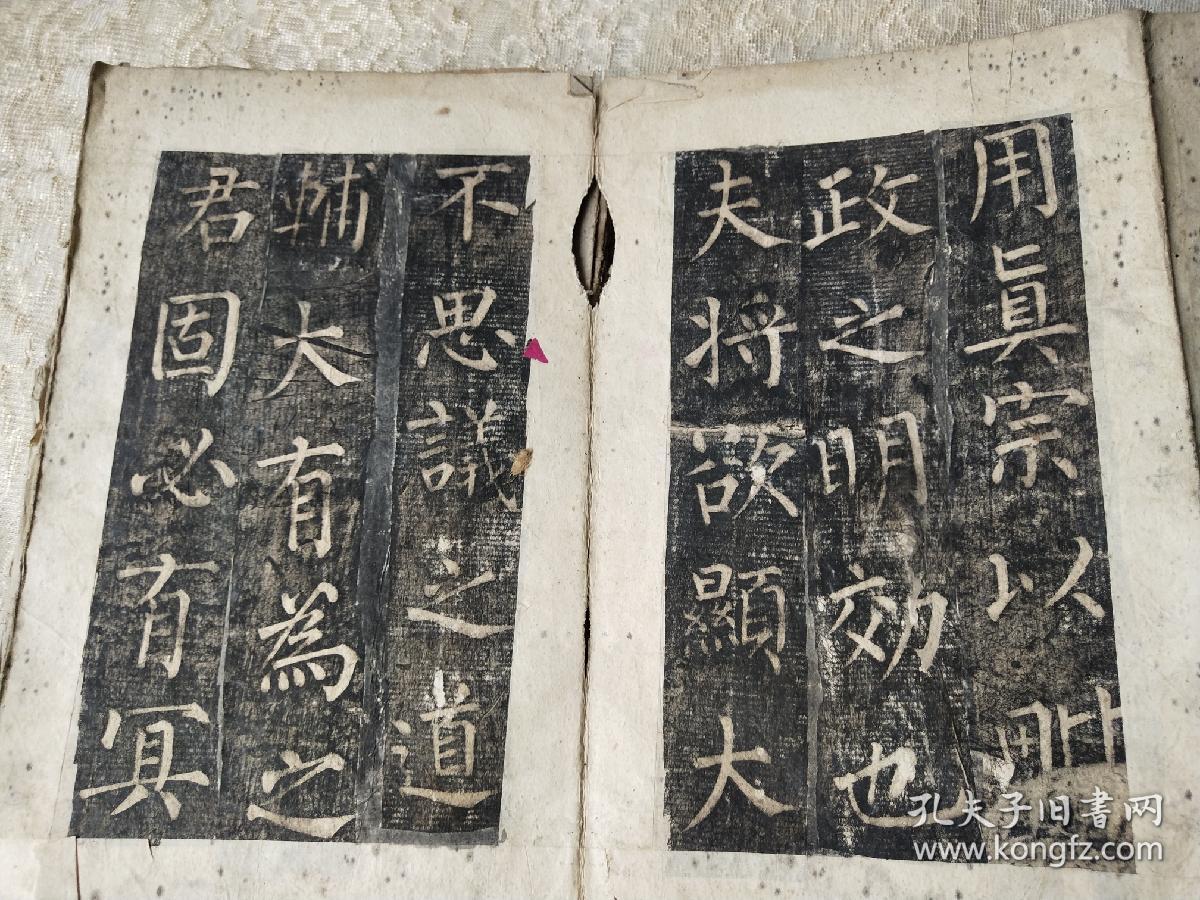 用眞宗以毗
政之明効也
夫将欲顯大
不思議之道
輔大有為之
君固必有冥
孔夫子旧書网
www.kongfz.com